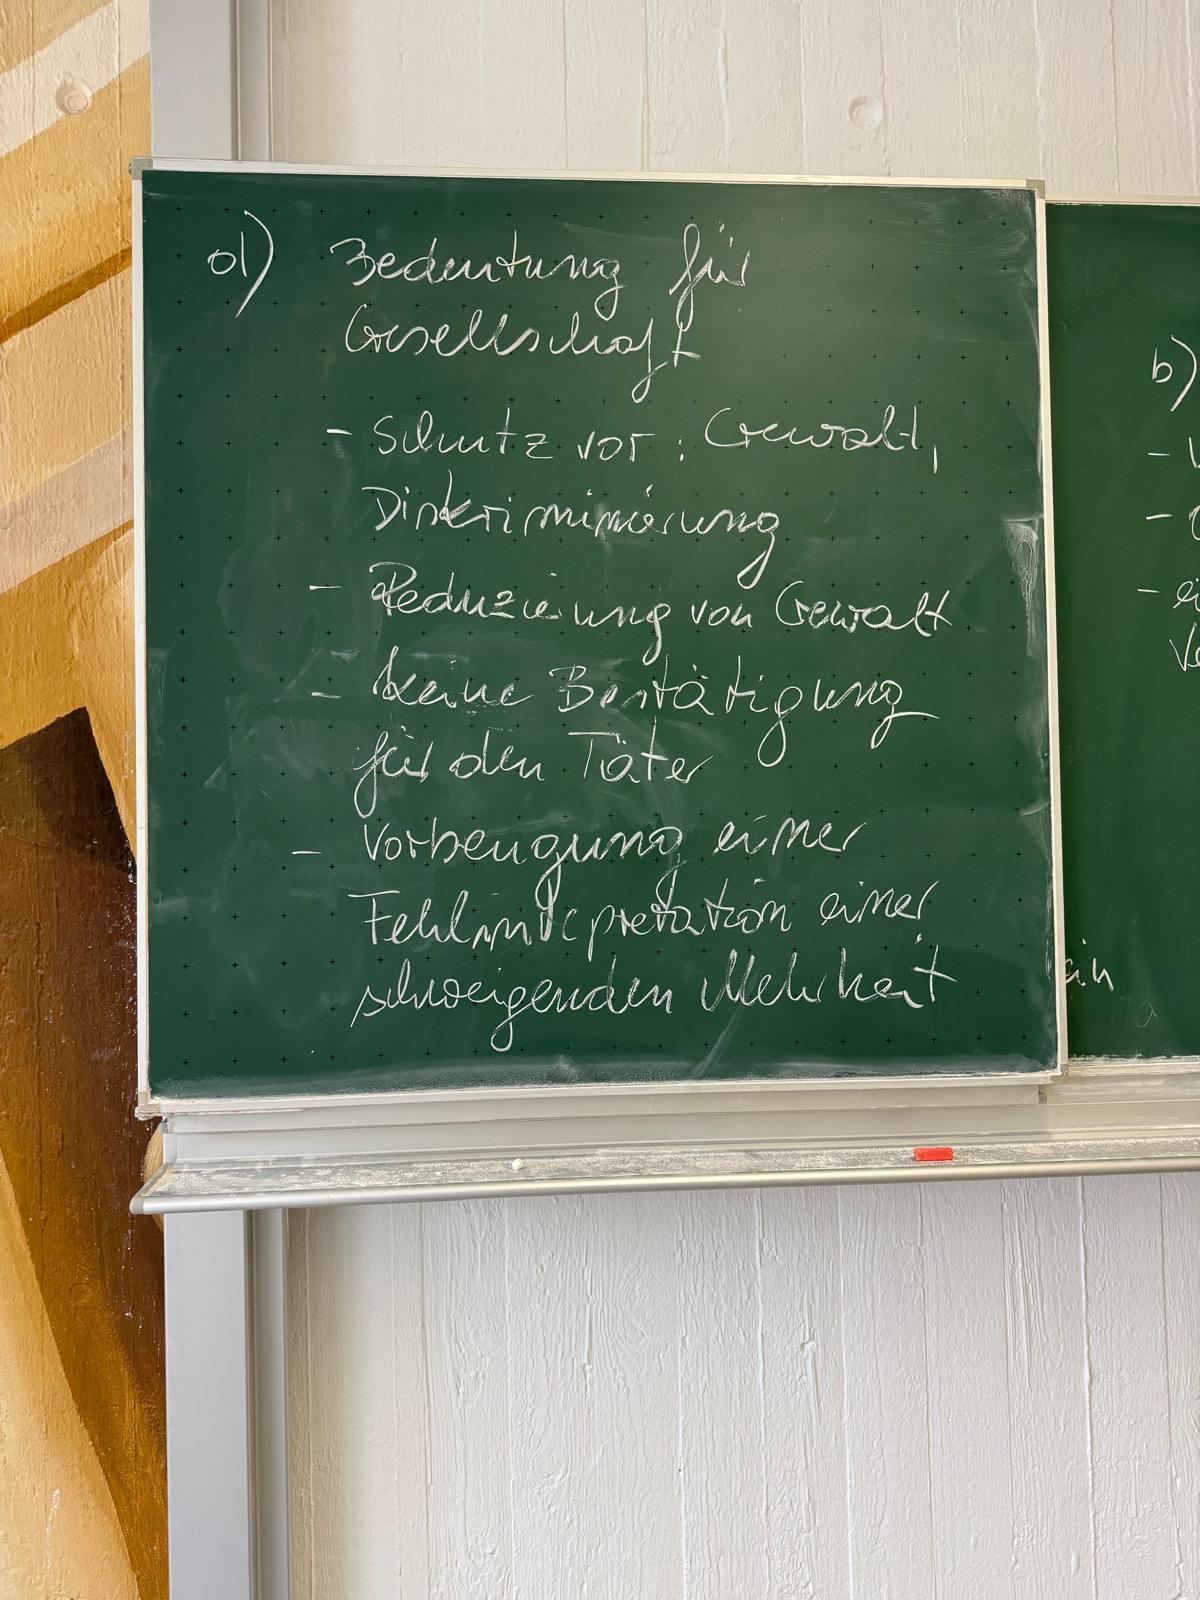 a) Bedeutung für
Gesellschaft
- Schutz vor: Gewalt,
Diskriminierung
- Reduzierung von Gewalt
- keine Bestätigung
für den Täter
- Vorbeugung einer
Fehlinterpretation einer
schweigenden Mehrheit
b)
-
-
- ei